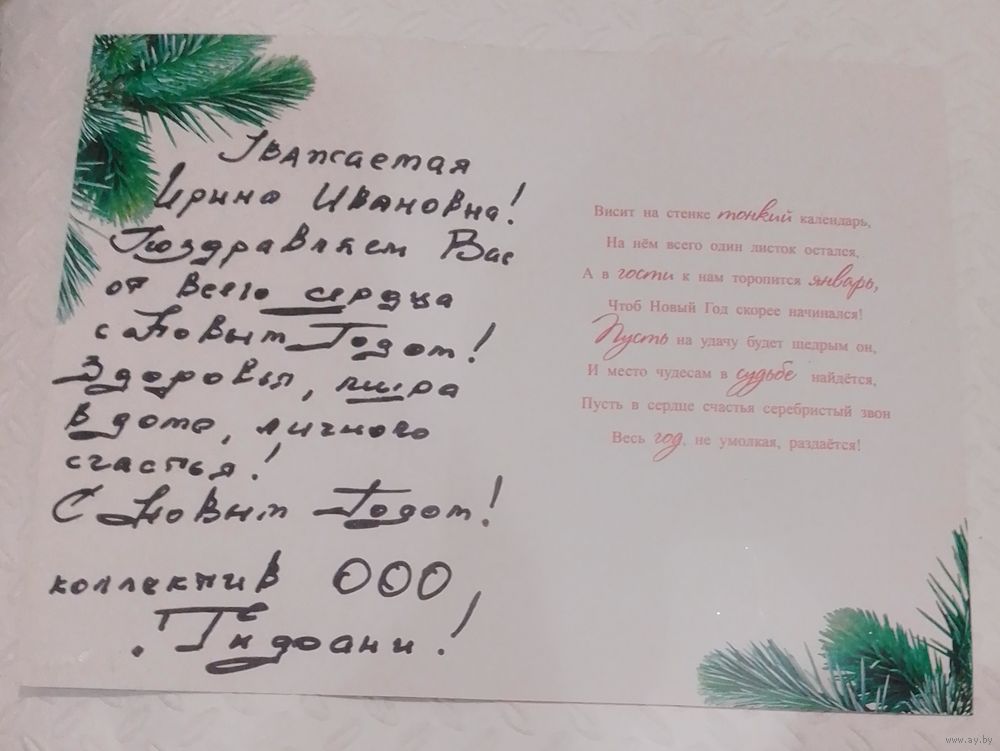 Уважаемая
Ирина Ивановна!
Поздравляем Вас
от всего сердца
с Новым Годом!
Здоровья, мира
в доме, личного
счастья!
С Новым Годом!
коллектив ООО
Висит на стенке тонкий календарь,
На нём всего один листок остался,
А в гости к нам торопится январь,
Чтоб Новый Год скорее начинался!
Пусть на удачу будет щедрым он,
И место чудесам в судьбе найдётся,
Пусть в сердце счастья серебристый звон
Весь год, не умолкая, раздаётся!
www.ay.by